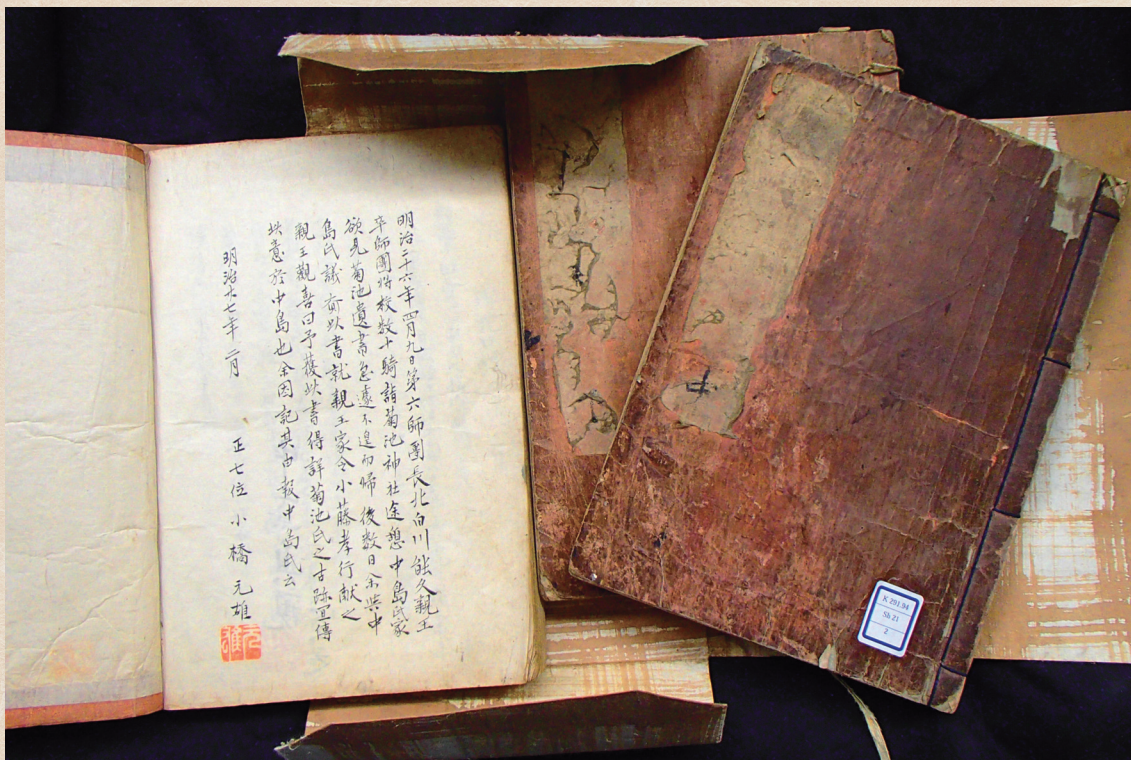 明治二十六年四月九日第六師團長北白川能久親王
率師團将校数十騎詣菊池神社途憩中島氏家
欲見菊池遺書急遽不遑而帰後数日余與中
島氏議齎此書就親王家令小藤孝行献之
親王觀喜曰予獲此書得詳菊池氏之古跡宜傳
此意於中島也余因記其由報中島氏云
明治廿七年二月 正七位 小橋元雄
元雄
K 291.94
Sh 21
2